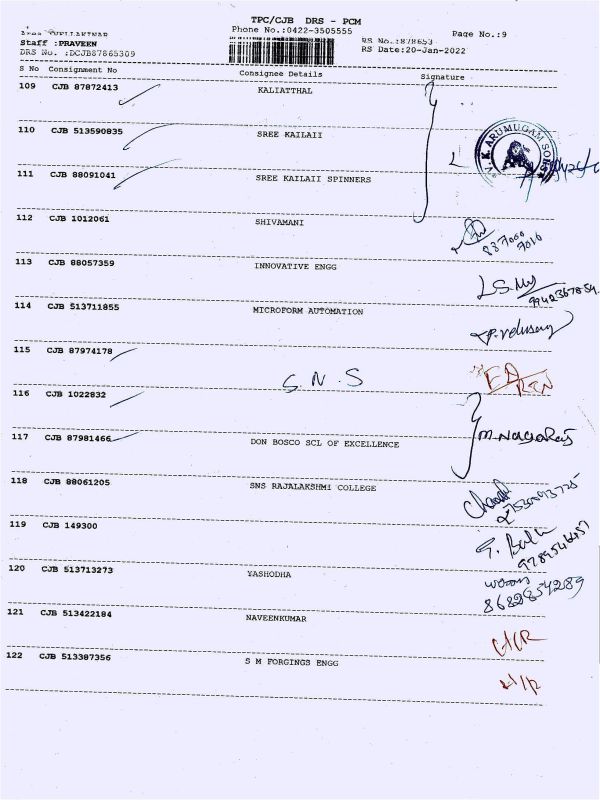 TPC/CJB DRS - PCM
Phone No.:0422-3505555
Page No.:9
Staff :PRAVEEN
RS No.:878653
DRS No. :DCJB87865309
RS Date:20-Jan-2022
S No Consignment No Consignee Details Signature
109 CJB 87872413 KALIATTHAL
110 CJB 513590835 SREE KAILAII
V.K. ARUMUGAM
111 CJB 88091041 SREE KAILAII SPINNERS
112 CJB 1012061 SHIVAMANI
837000
7016
113 CJB 88057359 INNOVATIVE ENGG
114 CJB 513711855 MICROFORM AUTOMATION
115 CJB 87974178
S.N.S
116 CJB 1022832
M. Nagaraj
117 CJB 87981466 DON BOSCO SCL OF EXCELLENCE
118 CJB 88061205 SNS RAJALAKSHMI COLLEGE
119 CJB 149300
120 CJB 513713273 YASHODHA
121 CJB 513422184 NAVEENKUMAR
122 CJB 513387356 S M FORGINGS ENGG